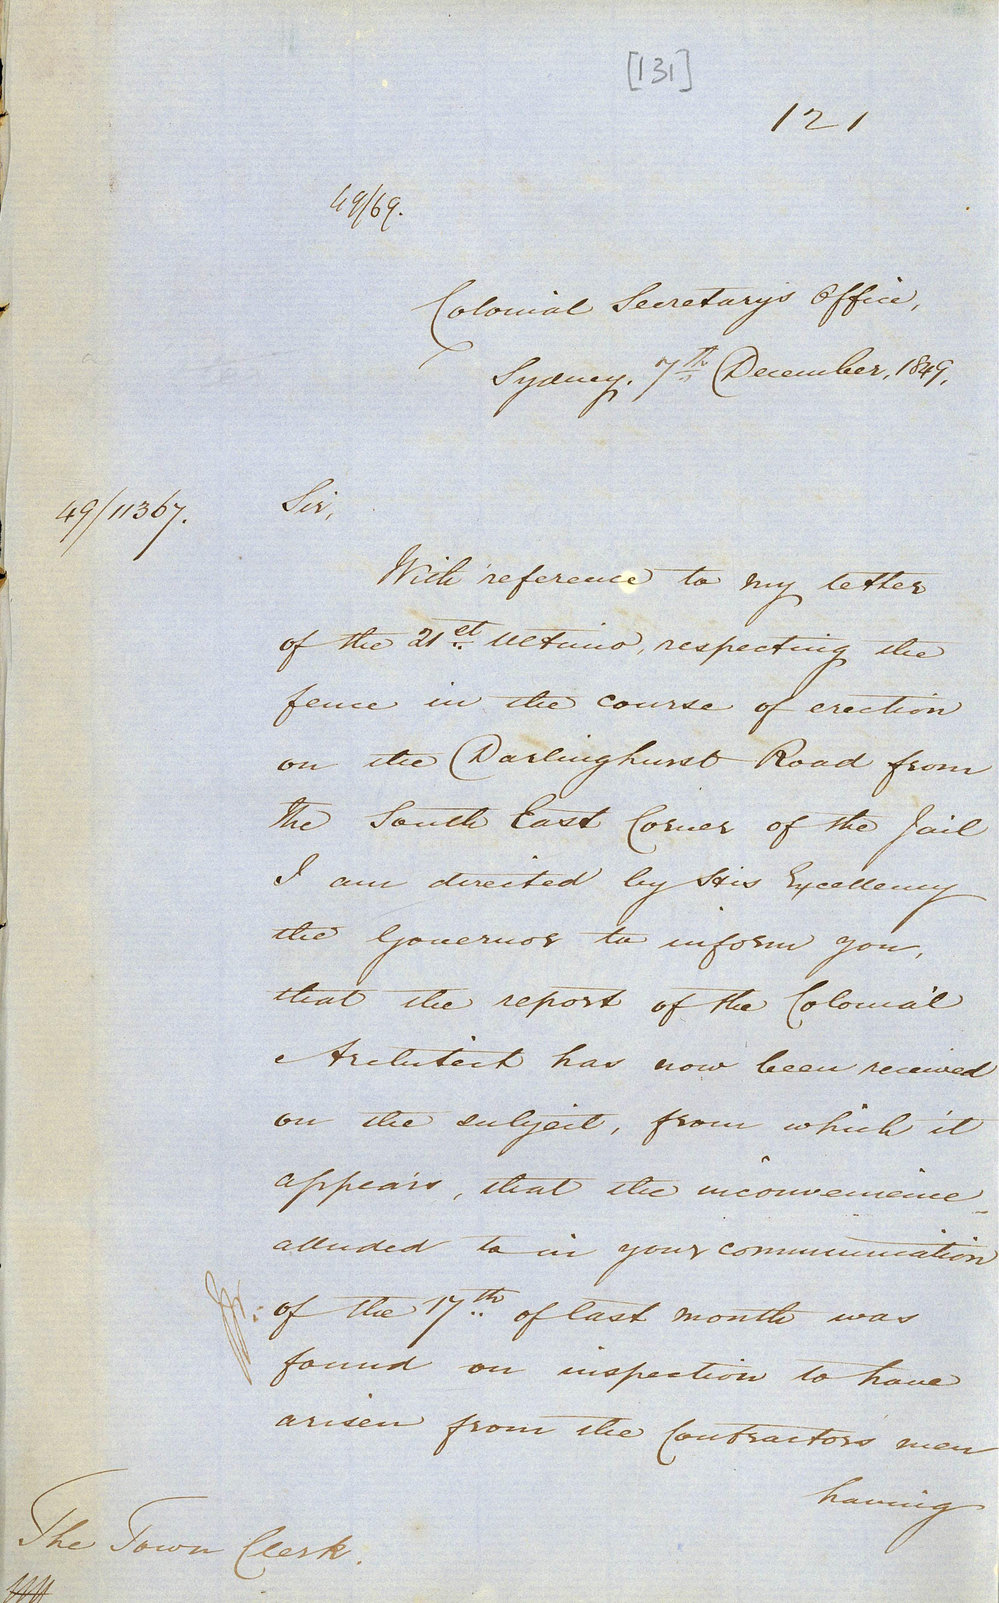 [131]
121
49/69.
Colonial Secretary's Office,
Sydney. 7th December, 1849.
49/11367.
Sir,
With reference to my letter
of the 21st Ultimo, respecting the
fence in the course of erection
on the Darlinghurst Road from
the South East Corner of the Jail
I am directed by His Excellency
the Governor to inform you,
that the report of the Colonial
Architect has now been received
on the subject, from which it
appears, that the inconvenience
alluded to in your communication
of the 17th of last month was
found on inspection to have
arisen from the Contractors men
having
The Town Clerk.